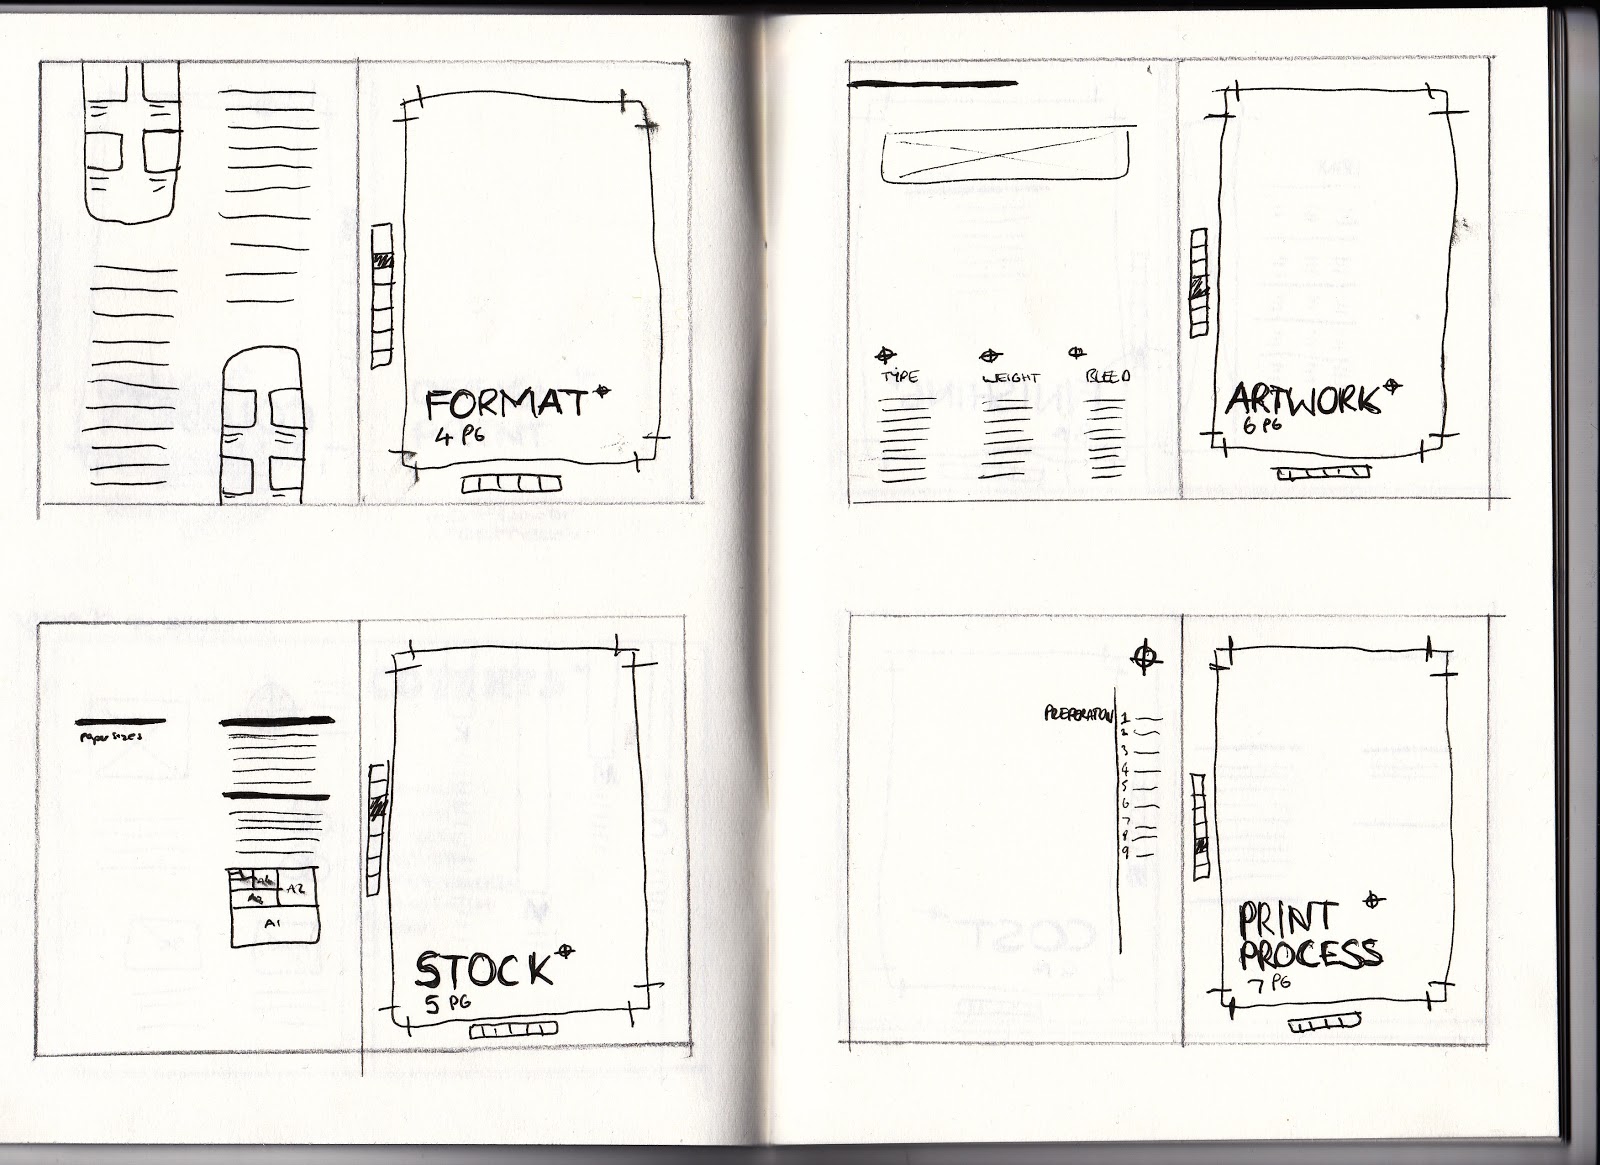 FORMAT
4 PG
TYPE
WEIGHT
BLEED
ARTWORK
6 PG
Paper sizes
A2
A1
STOCK
5 PG
PREPERATION
1
2
3
4
5
6
7
8
9
PRINT
PROCESS
7 PG